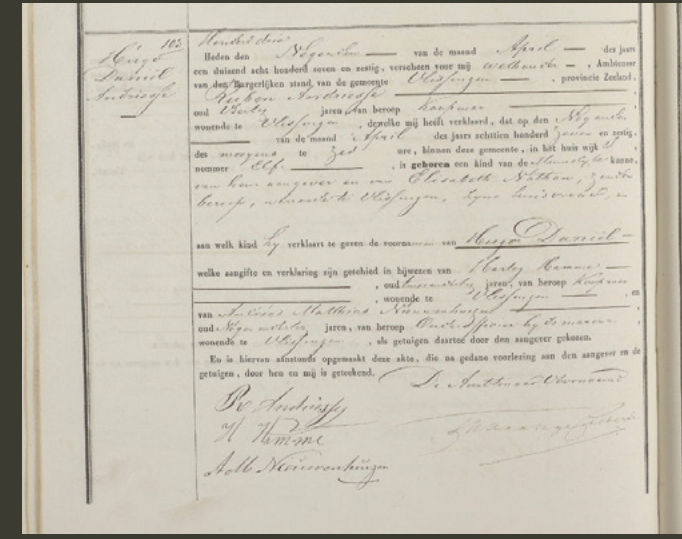 103
Hugo
Daniel
Andriesse
Honderd drie
Heden den Negenden van de maand April des jaars
een duizend acht honderd zeven en zestig, verscheen voor mij wethouder, Ambtenaar
van den Burgerlijken stand, van de gemeente Vlissingen, provincie Zeeland,
Ruben Andriesse
oud jaren, van beroep Koopman
wonende te Vlissingen, dewelke mij heeft verklaard, dat op den Negenden
van de maand April des jaars achttien honderd zeven en zestig,
des morgens te ure, binnen deze gemeente, in het huis wijk
nummer Elf, is geboren een kind van de Mannelijke kunne,
van hem aangever en van Elisabeth Nathan, zonder
beroep, wonende te Vlissingen, zijne huisvrouw, en
aan welk kind hij verklaart te geven de voornamen van Hugo Daniel
welke aangifte en verklaring zijn geschied in bijwezen van Hemme
, oud jaren, van beroep Koopman
, wonende te Vlissingen, en
van Matthius Nieuwenhuijzen
oud jaren, van beroep
wonende te Vlissingen, als getuigen daartoe door den aangever gekozen.
En is hiervan afstonds opgemaakt deze akte, die na gedane voorlezing aan den aangever en de
getuigen, door hen en mij is geteekend.
De Ambtenaar Voornoemd
R Andriesse
H Hemme
A M Nieuwenhuijzen